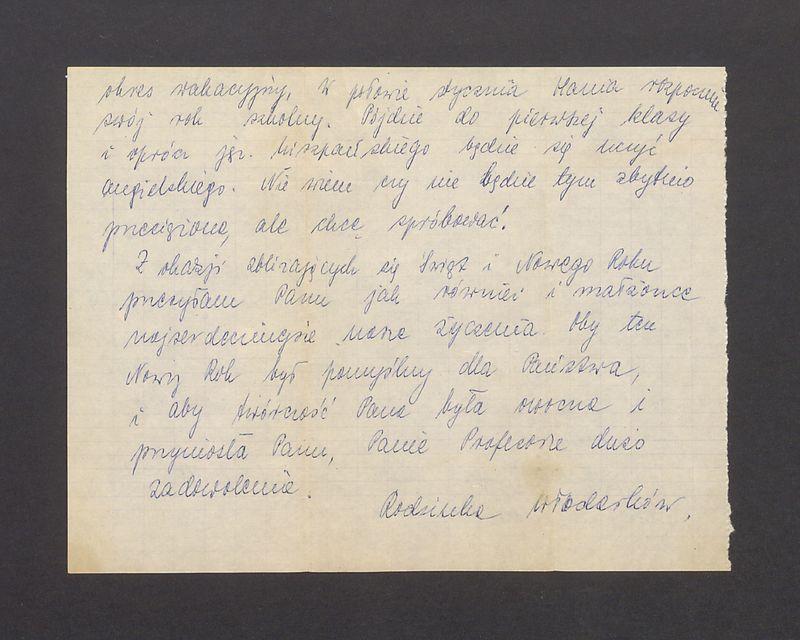 okres wakacyjny. W połowie stycznia Hania rozpocznie
swój rok szkolny. Pójdzie do pierwszej klasy
i oprócz jęz. hiszpańskiego będzie się uczyć
angielskiego. Nie wiem czy nie będzie tym zbytnio
przeciążona, ale chcę spróbować.
Z okazji zbliżających się Świąt i Nowego Roku
przesyłam Panu jak również i małżonce
najserdeczniejsze nasze życzenia. Oby ten
Nowy Rok był pomyślny dla Państwa,
i aby twórczość Pana była owocna i
przyniosła Panu, Panie Profesorze dużo
zadowolenia.
Rodzinka Włodarków.